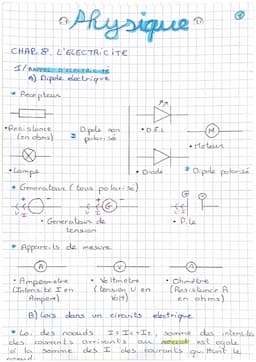 Physique
CHAP. 8. L'ELECTRICITE
I/ RAPPEL D'ELECTRICITE
A) Dipole électrique
• Recepteurs
• Resistance
(en ohms)
Dipole non
polarisé
• D.E.L
M
• Moteur
• Lampe
• Diode
Dipole polarisé
• Generateur (tous polarisé)
G
• Generateur de
tension
• Pile
• Appareils de mesure
A
V
Ω
• Ampèremètre
(Intensité I en
Ampère)
• Voltmètre
(tension U en
Volt)
• Ohmètre
(Resistance R
en ohms)
B) Lois dans un circuits electrique
• Loi des noeuds I = I1 + I2, somme des intensités
des courants arrivants au noeud est egale
à la somme des I des courants quittant le
noeud.